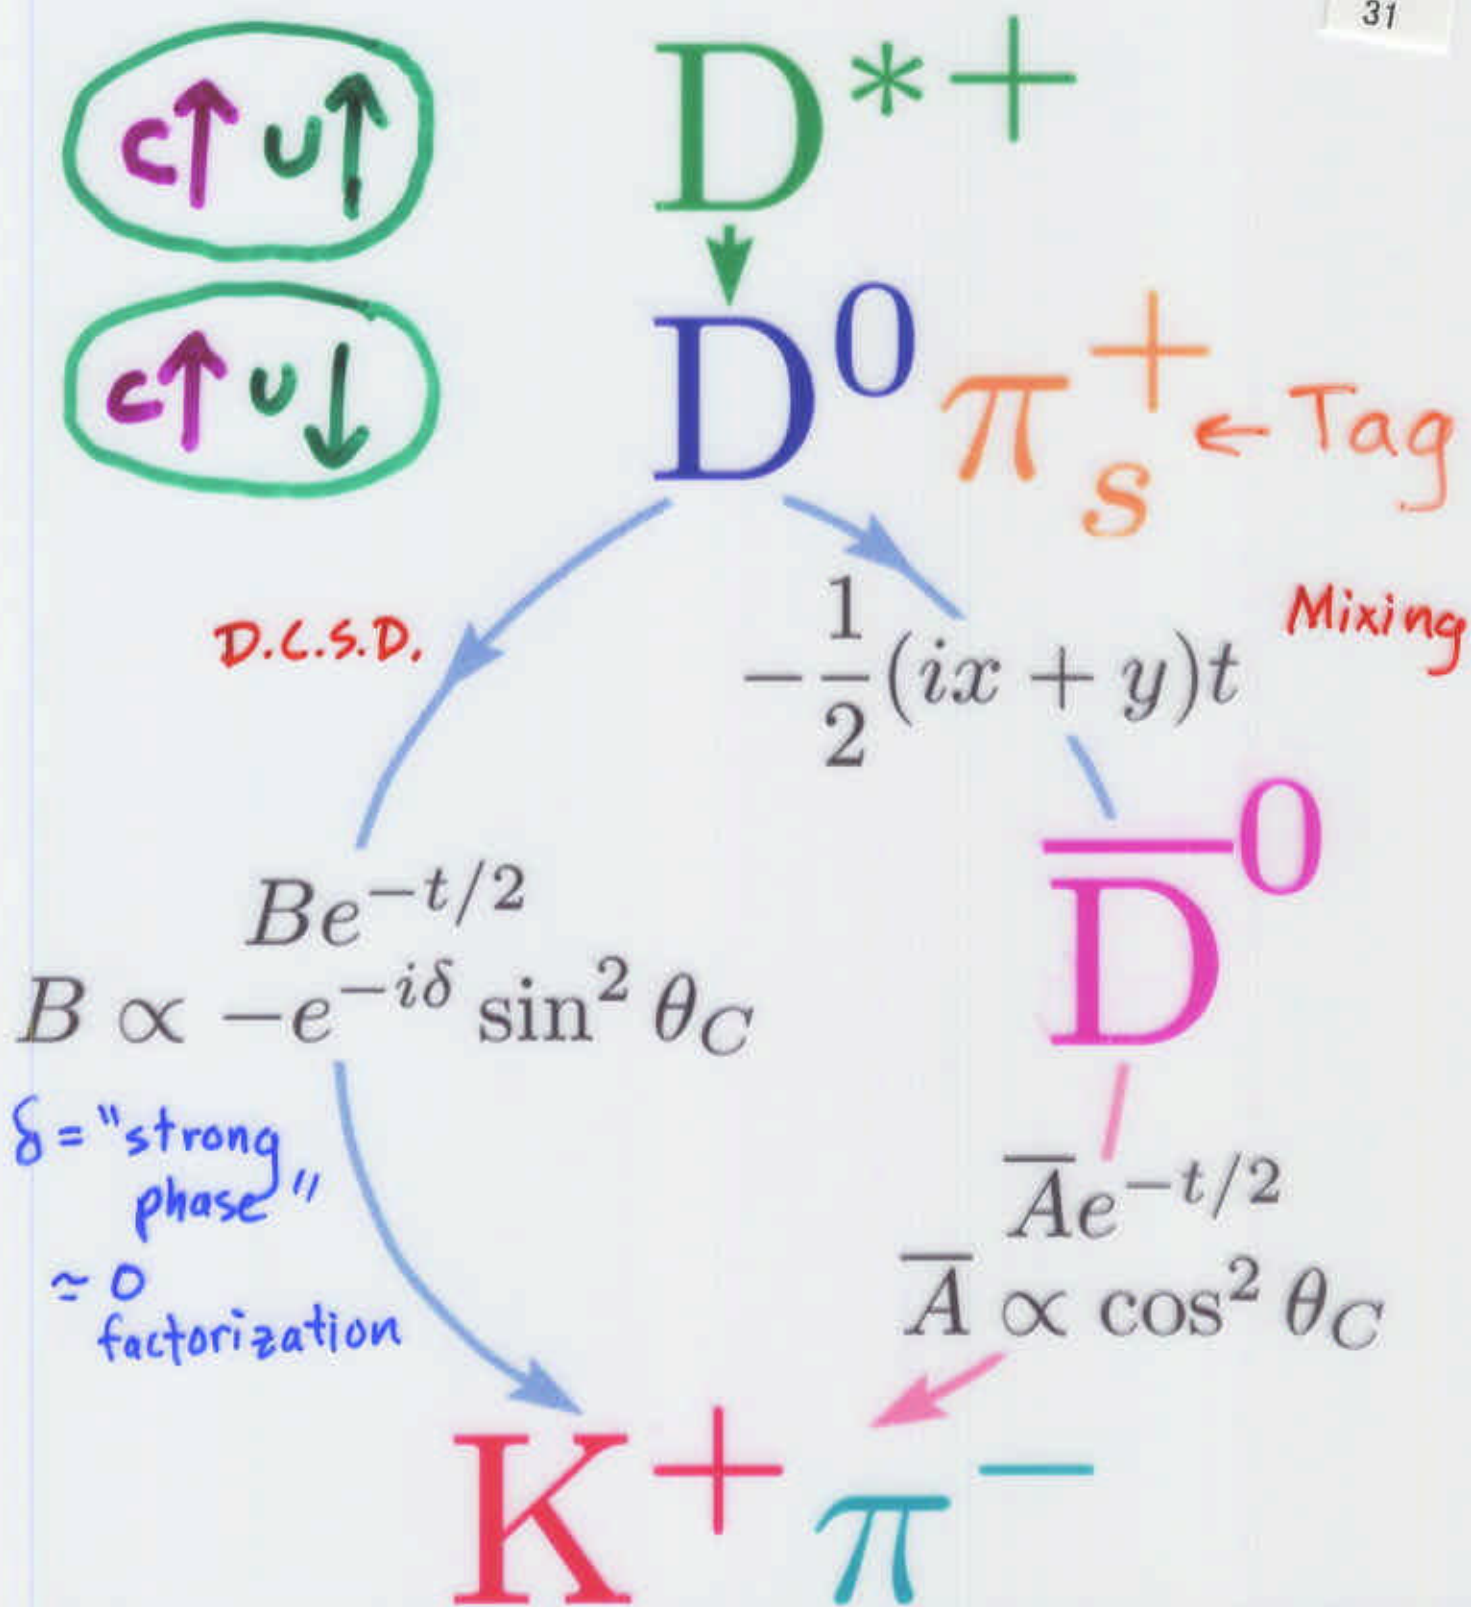 31
c↑ u↑
D*+
c↑ u↓
D⁰ πₛ⁺ ← Tag
D.C.S.D.
Mixing
−1/2(ix + y)t
D̅⁰
Be^{−t/2}
B ∝ −e^{−iδ} sin² θ_C
δ = "strong
phase"
≃ 0
factorization
A̅e^{−t/2}
A̅ ∝ cos² θ_C
K⁺ π⁻